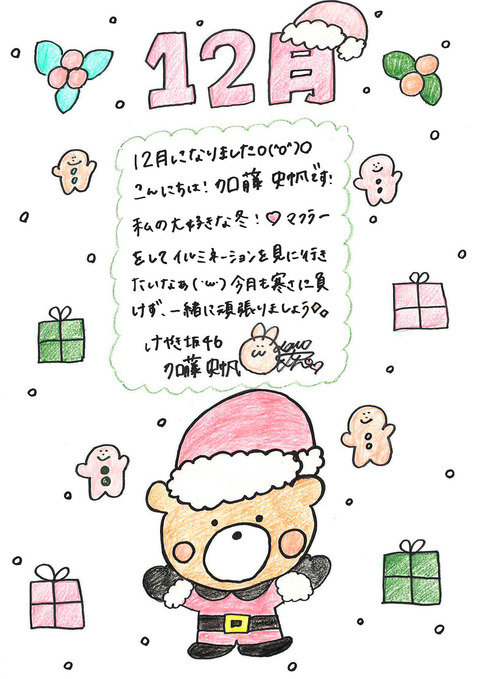 12月
12月になりましたo(^o^)o
こんにちは! 加藤 史帆です!
私の大好きな冬!♡マフラー
をしてイルミネーションを見に行き
たいなぁ(˙ω˙)今月も寒さに負
けず、一緒に頑張りましょう。
けやき坂46
加藤 史帆